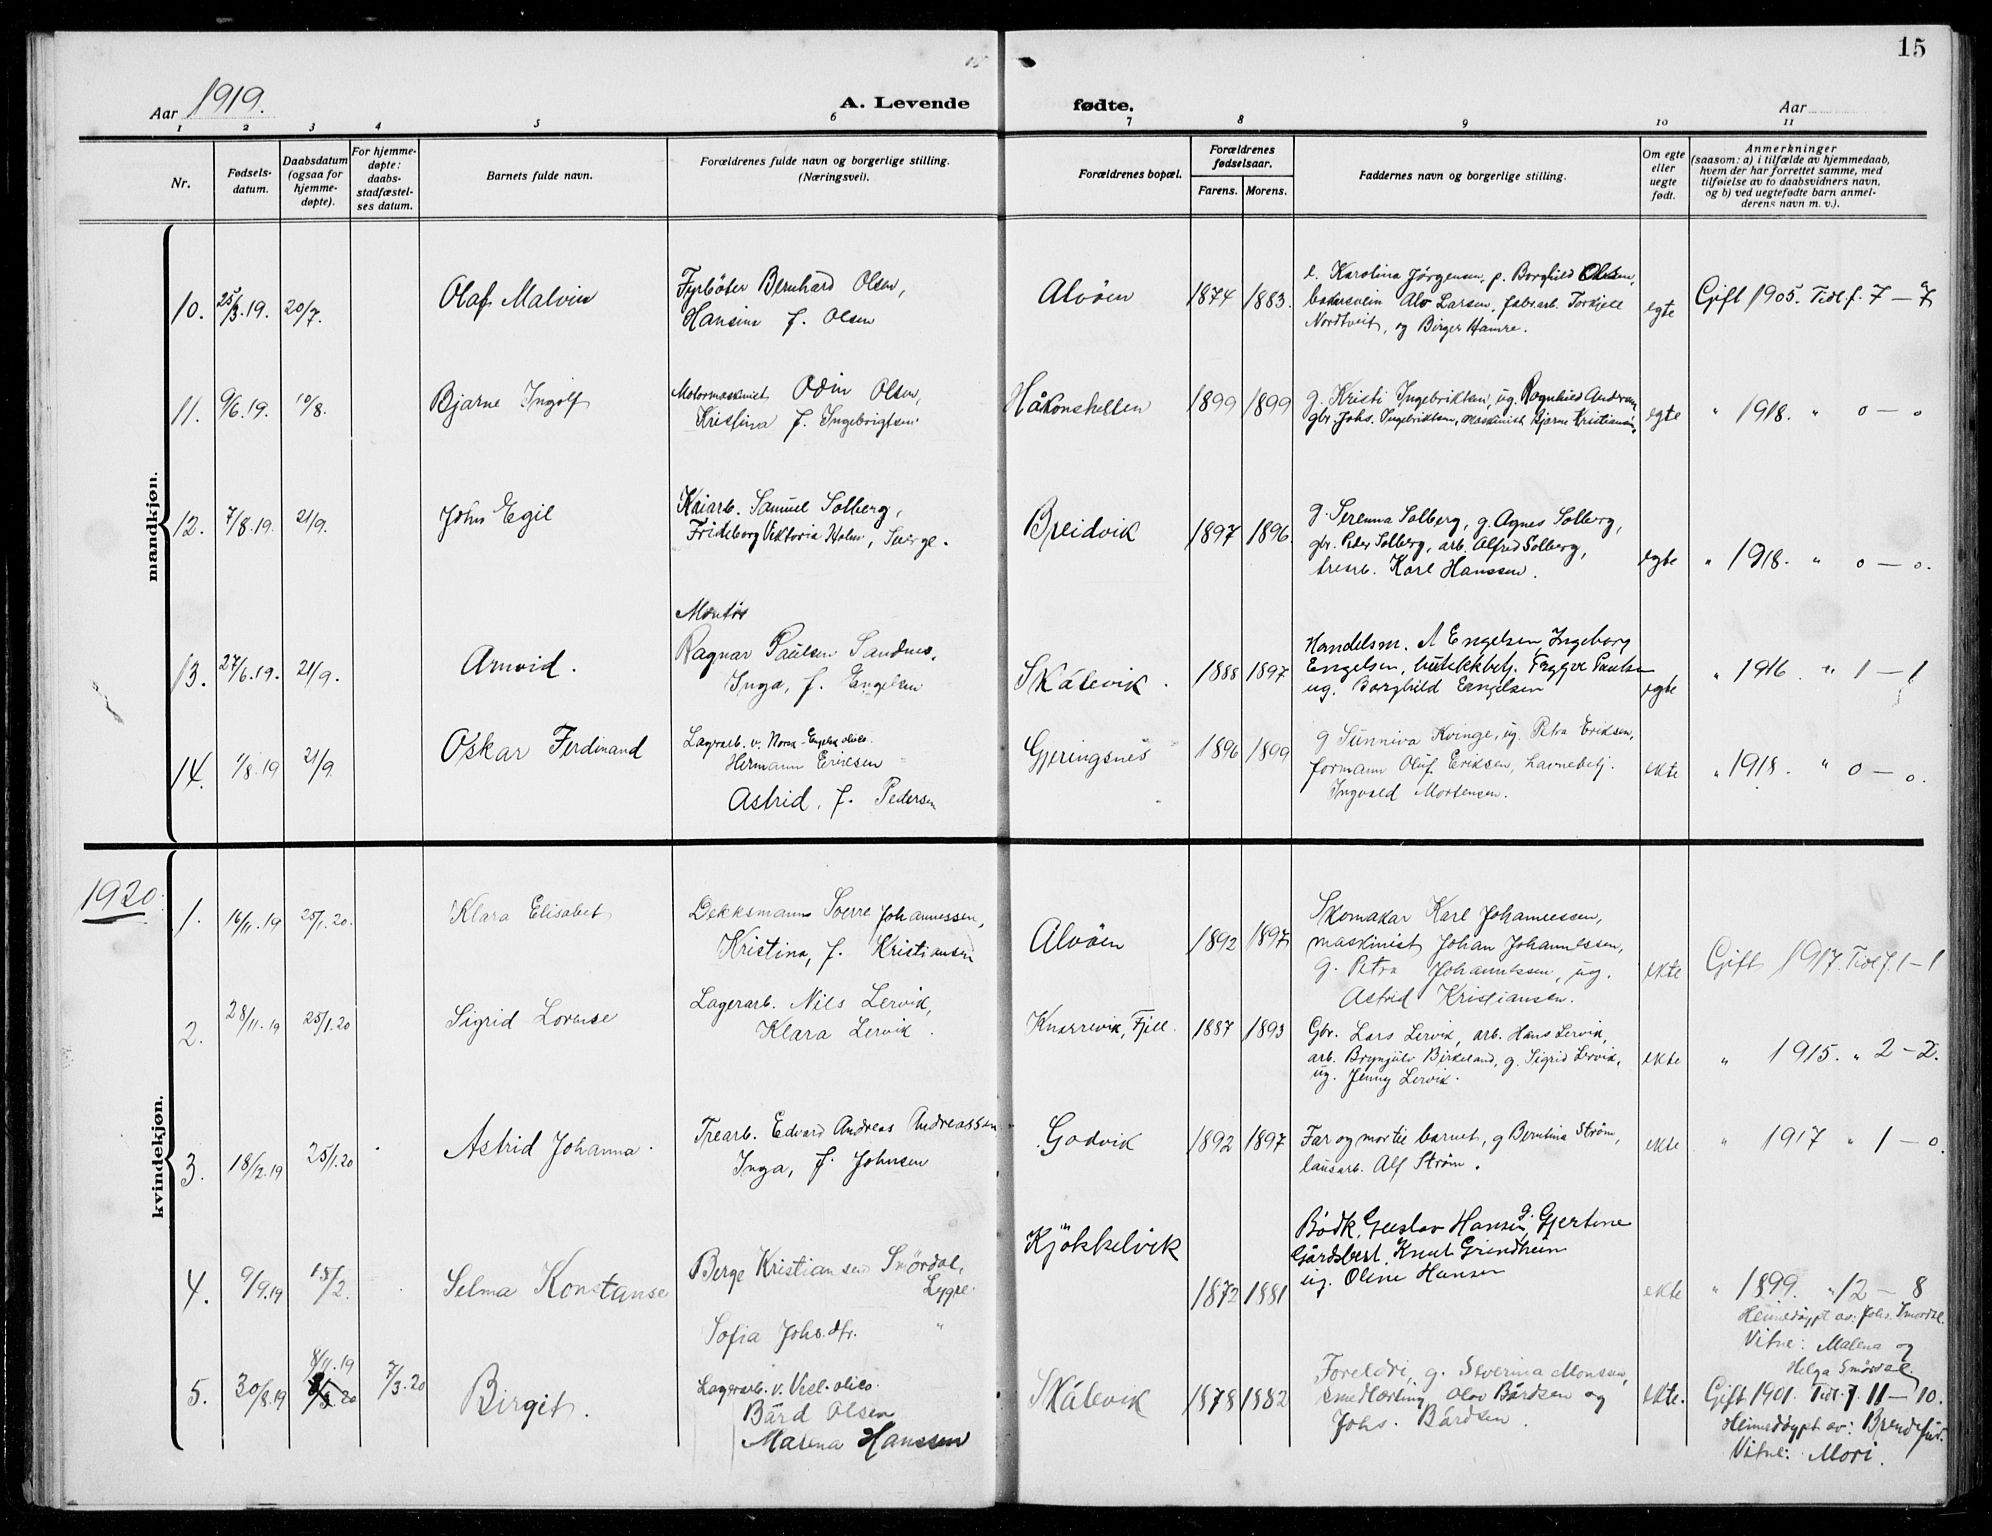 15
Aar 1919.
A. Levende fødte.
Aar
1 2 3 4 5 6 7 8 9 10 11
Nr.
Fødsels-
datum.
Daabsdatum
(ogsaa for
hjemme-
døpte).
For hjemme-
døpte:
daabs-
stadfæstel-
ses datum.
Barnets fulde navn.
Forældrenes fulde navn og borgerlige stilling.
(Næringsvei).
Forældrenes bopæl.
Forældrenes
fødselsaar.
Farens. Morens.
Faddernes navn og borgerlige stilling.
Om egte
eller
uegte
født.
Anmerkninger
(saasom: a) i tilfælde av hjemmedaab,
hvem der har forrettet samme, med
tilføielse av to daabsvidners navn,
og b) ved uegtefødte barn anmel-
derens navn m. v.).
mandkjøn.
10. 25/3.19. 20/7.
Olaf Malvin
Fyrböter Bernhard Olsen,
Hansine f. Olsen
Alvöen
1874 1883.
e. Karolina Jörgensen, p. Borghild Olsen,
bakersvein Alv Larsen, fabr.arb. Torkjell
Nordtveit, og Birger Hamre.
egte
Gift 1905. Tidl. f. 7 — 7
11. 9/6.19. 10/8.
Bjarne Ingolf
Motormaskinist Odin Olsen,
Kristina f. Ingebrigtsen
Håkonshellen
1899 1899
g. Kristi Ingebriktsen, ug. Ragnhild Andersen
gbr. Johs. Ingebriktsen, maskinist Bjarne Kristiansen,
egte
" 1918. " 0 — 0
12. 7/8.19. 21/9.
John Egil
Kaiarb. Samuel Solberg,
Frideborg Viktoria Holm, Sverge.
Breidvik
1897 1896.
g. Serenna Solberg, g. Agnes Solberg,
gbr. Peder Solberg, arb. Alfred Solberg,
trearb. Karl Hanssen.
egte
" 1918. " 0 — 0.
13. 27/6.19. 21/9.
Arnvid.
Montör
Ragnar Paulsen Sandnes,
Inga, f. Engelsen
Skålevik.
1888 1897
Handelsm. A Engelsen, Ingeborg
Engelsen, butikkbetj. Tryggve Paulsen
ug. Borghild Engelsen
egte
" 1916. " 1 — 1
14. 1/8.19 21/9.
Oskar Ferdinand
Lagerarb. v. Norsk-Engelsk olieco.
Hermann Eriksen
Astrid, f. Pedersen
Gjeringsnes
1896 1899
g Sunniva Kvinge, ug. Petra Eriksen,
formann Oluf Eriksen, havnebetj.
Ingvald Mortensen.
ekte
" 1918. " 0 — 0.
1920.
kvindekjøn.
1. 16/11.19 25/1.20.
Klara Elisabet
Dekksmann Sverre Johannessen,
Kristina, f. Kristiansen
Alvöen
1892 1897
Skomakar Karl Johannessen,
maskinist Johan Johannessen,
g. Petra Johannessen, ug.
Astrid Kristiansen.
ekte
Gift 1917. Tidl f. 1 — 1
2. 28/11.19 25/1.20
Sigrid Lovise
Lagerarb. Nils Lervik,
Klara Lervik.
Knarrevik, Fjell.
1887 1893
Gbr. Lars Lervik, arb. Hans Lervik,
arb. Brynjulv Birkeland, g. Sigrid Lervik,
ug. Jenny Lervik.
ekte
" 1915. " 2 — 2.
3. 18/12.19 25/1.20
Astrid Johanna.
Trearb. Edvard Andreas Andreassen
Inga, f. Johnsen
Godvik
1892 1897
Far og mor til barnet, g Berntina Strøm,
lausarb. Alf Strøm.
ekte
" 1917 " 1 — 0.
4. 9/9.19 15/2.
Selma Konstanse
Berge Kristiansen Smördal,
Lygre.
Sofia Johs.dtr. "
Kjökkelvik
1872 1881
Bödk. Gustav Hansen, g. Gjertine
Gårdsbest. Knut Grindheim
ug. Oline Hansen
ekte
" 1899. " 12 — 8
Heimedöypt av: Johs. Smördal.
Vitne: Malena og
Helga Smördal.
5. 30/8.19 8/11.19 7/3.20
Birgit.
Lagerarb. v. Vest. olieco.
Bård Olsen
Malena Hanssen
Skålevik
1878 1882
Foreldri, g. Severina Monsen,
smedlærling Olav Bårdsen og
Johs. Bårdsen.
ekte.
Gift 1901. Tidl. f. 11 — 10.
Heimedöypt av:
Vitne: Mori.